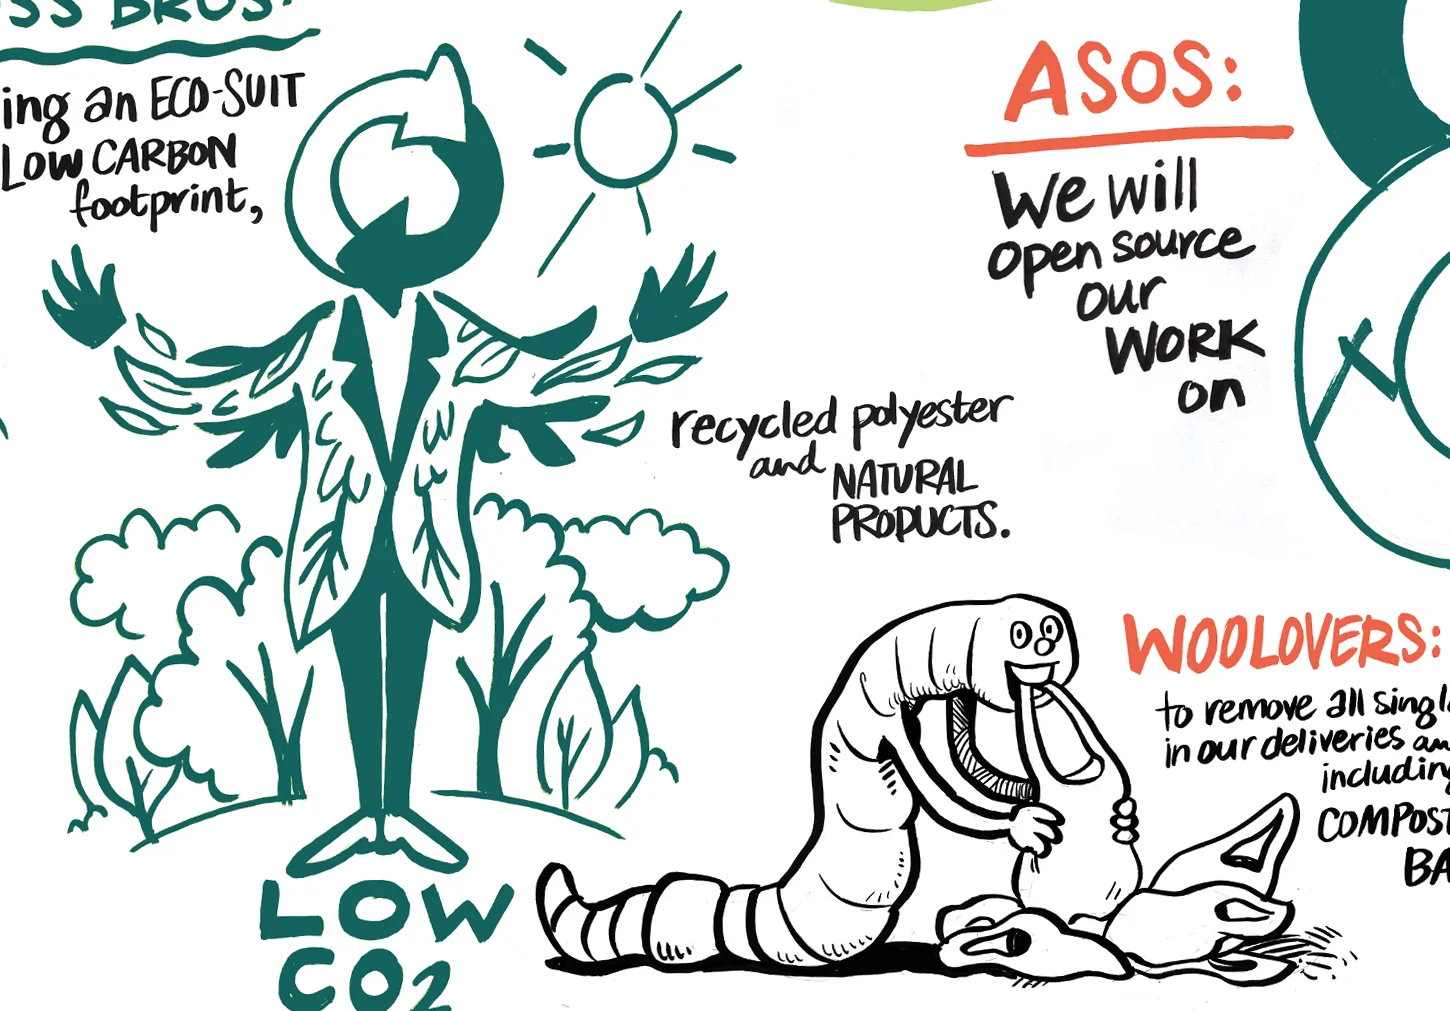 SS BROS.
ing an ECO-SUIT
LOW CARBON
footprint,
recycled polyester
and NATURAL
PRODUCTS.
LOW
CO2
ASOS:
We will
open source
our
WORK
on
WOOLOVERS:
to remove all singl
in our deliveries an
including
COMPOST
BA